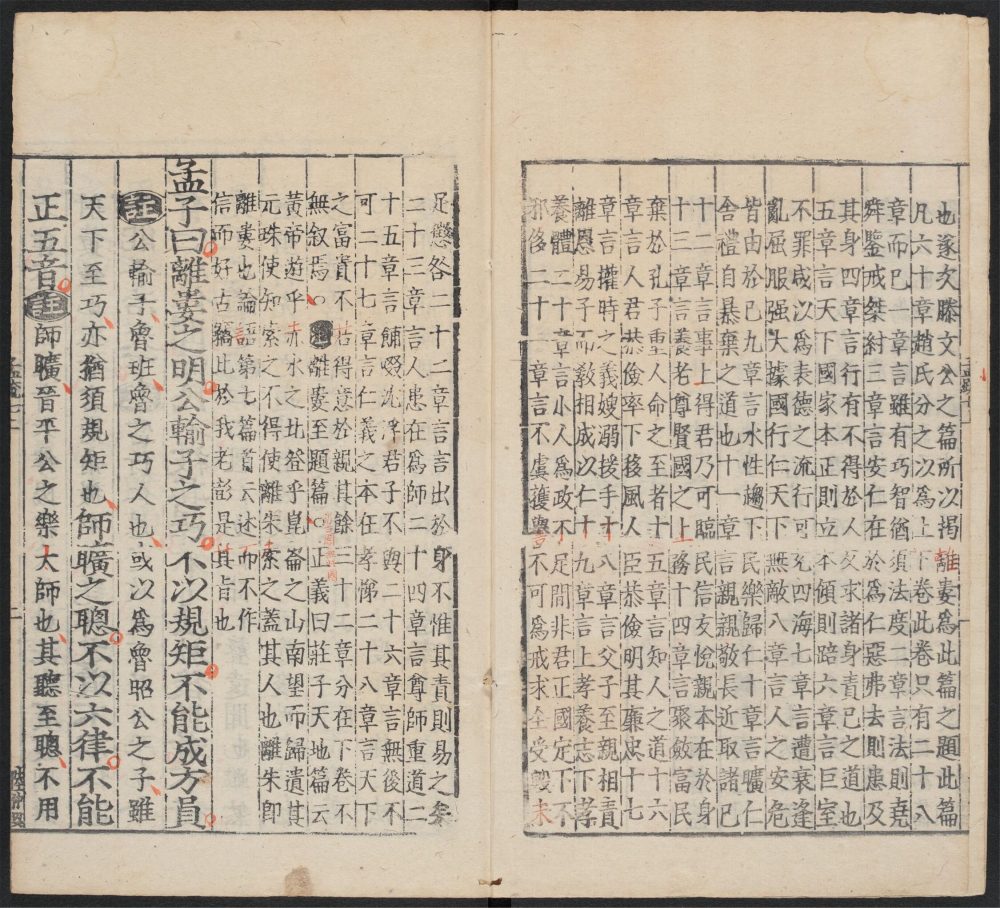 也遂次滕文公之篇所以揭離婁爲此篇之題此篇
凡六十章趙氏分之以爲上下卷此卷只有二十八
章而已一章言雖有巧智猶須法度二章言法則堯
舜鑒戒桀紂三章言安仁在於爲仁惡弗去則患及
其身四章言行有不得於人反求諸身責己之道也
五章言天下國家本正則立本傾則踣六章言巨室
不罪咸以爲表德之流行可充四海七章言遭衰逢
亂屈服强大據國行仁天下無敵八章言人之安危
皆由於己九章言水性趨下民樂歸仁十章言曠仁
舍禮自暴棄之道也十一章言親親敬長近取諸己
十二章言事上得君乃可臨民信友悅親本在於身
十三章言養老尊賢國之上務十四章言聚斂富民
棄於孔子重人命之至者十五章言知人之道十六
章言人君恭儉率下移風人臣恭儉明其廉忠十七
章言權時之義嫂溺援手十八章言父子至親相責
離恩易子而敎相成以仁十九章言上孝養志下孝
養體二十章言小人爲政不足間非君正國定下不
邪侈二十一章言不虞獲譽不可爲戒求全受毀未
足懲咎二十二章言言出於身不惟其責則易之矣
二十三章言人患在爲師二十四章言尊師重道二
十五章言餔啜沈浮君子不與二十六章言無後不
可二十七章言仁義之本在孝悌二十八章言天下
之富貴不若得意於親其餘三十二章分在下卷不
無叙焉○離婁至題篇○正義曰莊子天地篇云
黃帝遊乎赤水之北登乎崑崙之山南望而歸遺其
元珠使知索之不得使離朱索之蓋其人也離朱即
離婁也論語第七篇首云述而不作
信而好古竊比於我老彭是其旨也
孟子曰離婁之明公輸子之巧不以規矩不能成方員
註公輸子魯班魯之巧人也或以爲魯昭公之子雖
天下至巧亦猶須規矩也師曠之聰不以六律不能
正五音註師曠晉平公之樂大師也其聽至聰不用